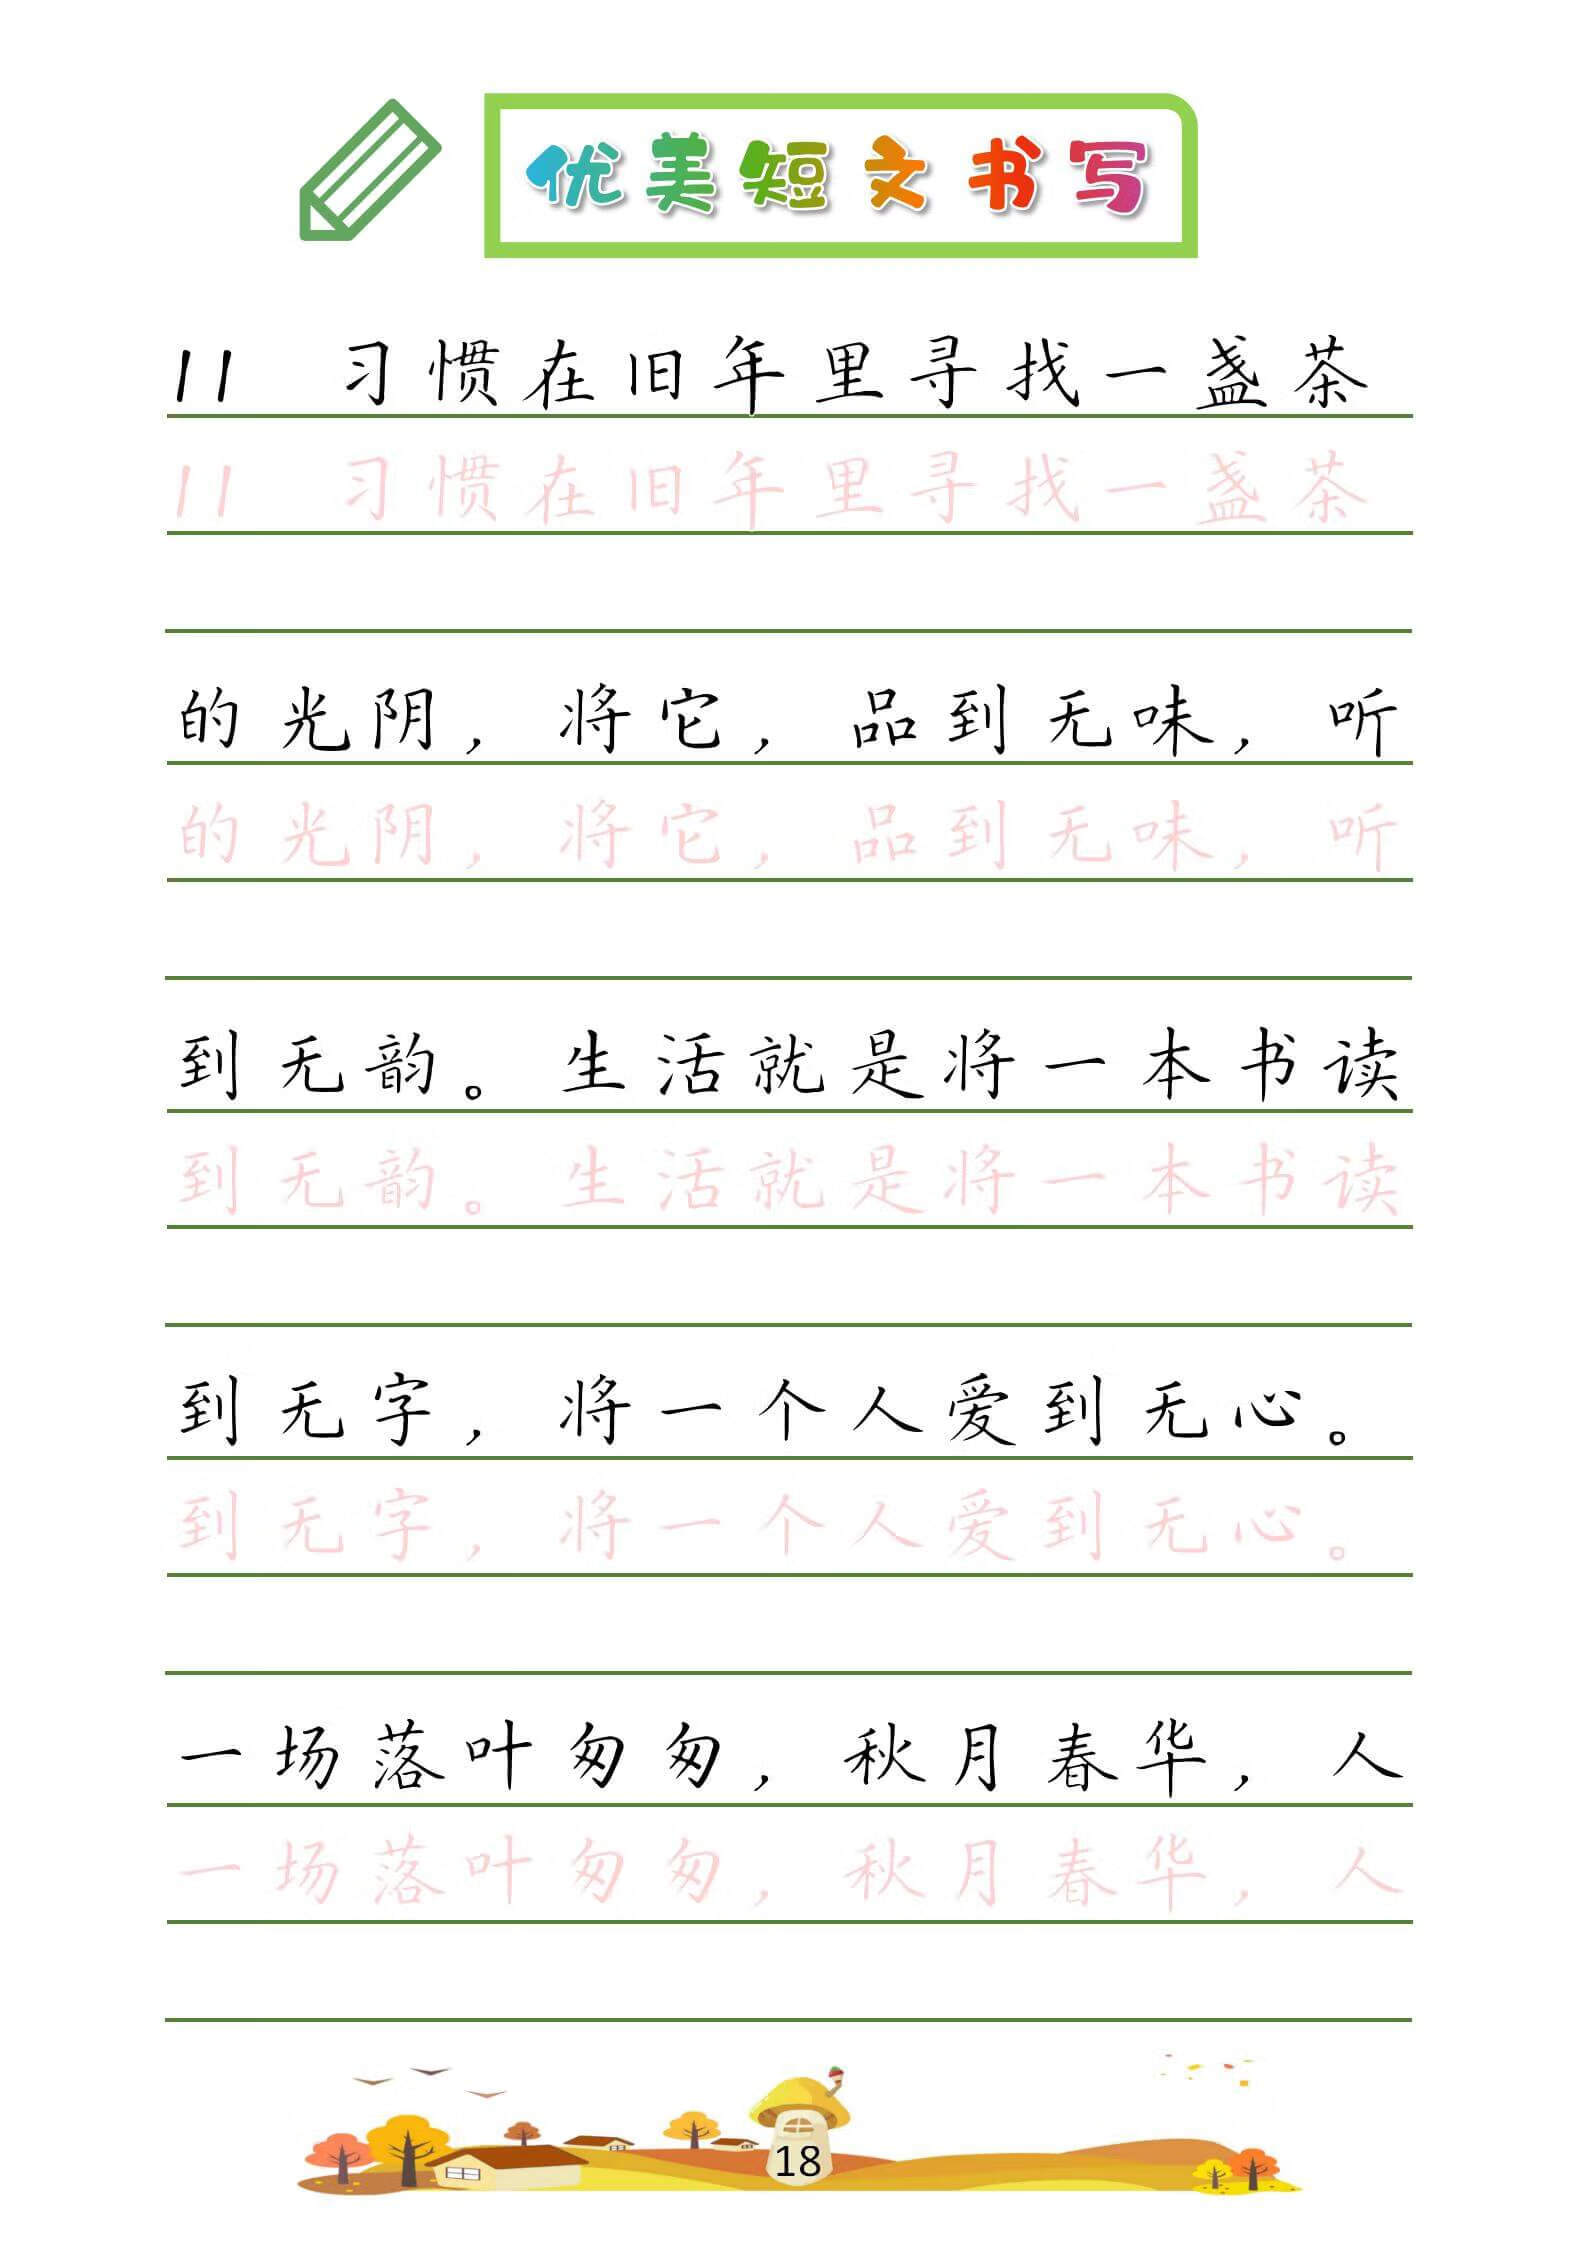 优美短文书写
11 习惯在旧年里寻找一盏茶
11 习惯在旧年里寻找一盏茶
的光阴，将它，品到无味，听
的光阴，将它，品到无味，听
到无韵。生活就是将一本书读
到无韵。生活就是将一本书读
到无字，将一个人爱到无心。
到无字，将一个人爱到无心。
一场落叶匆匆，秋月春华，人
一场落叶匆匆，秋月春华，人
18